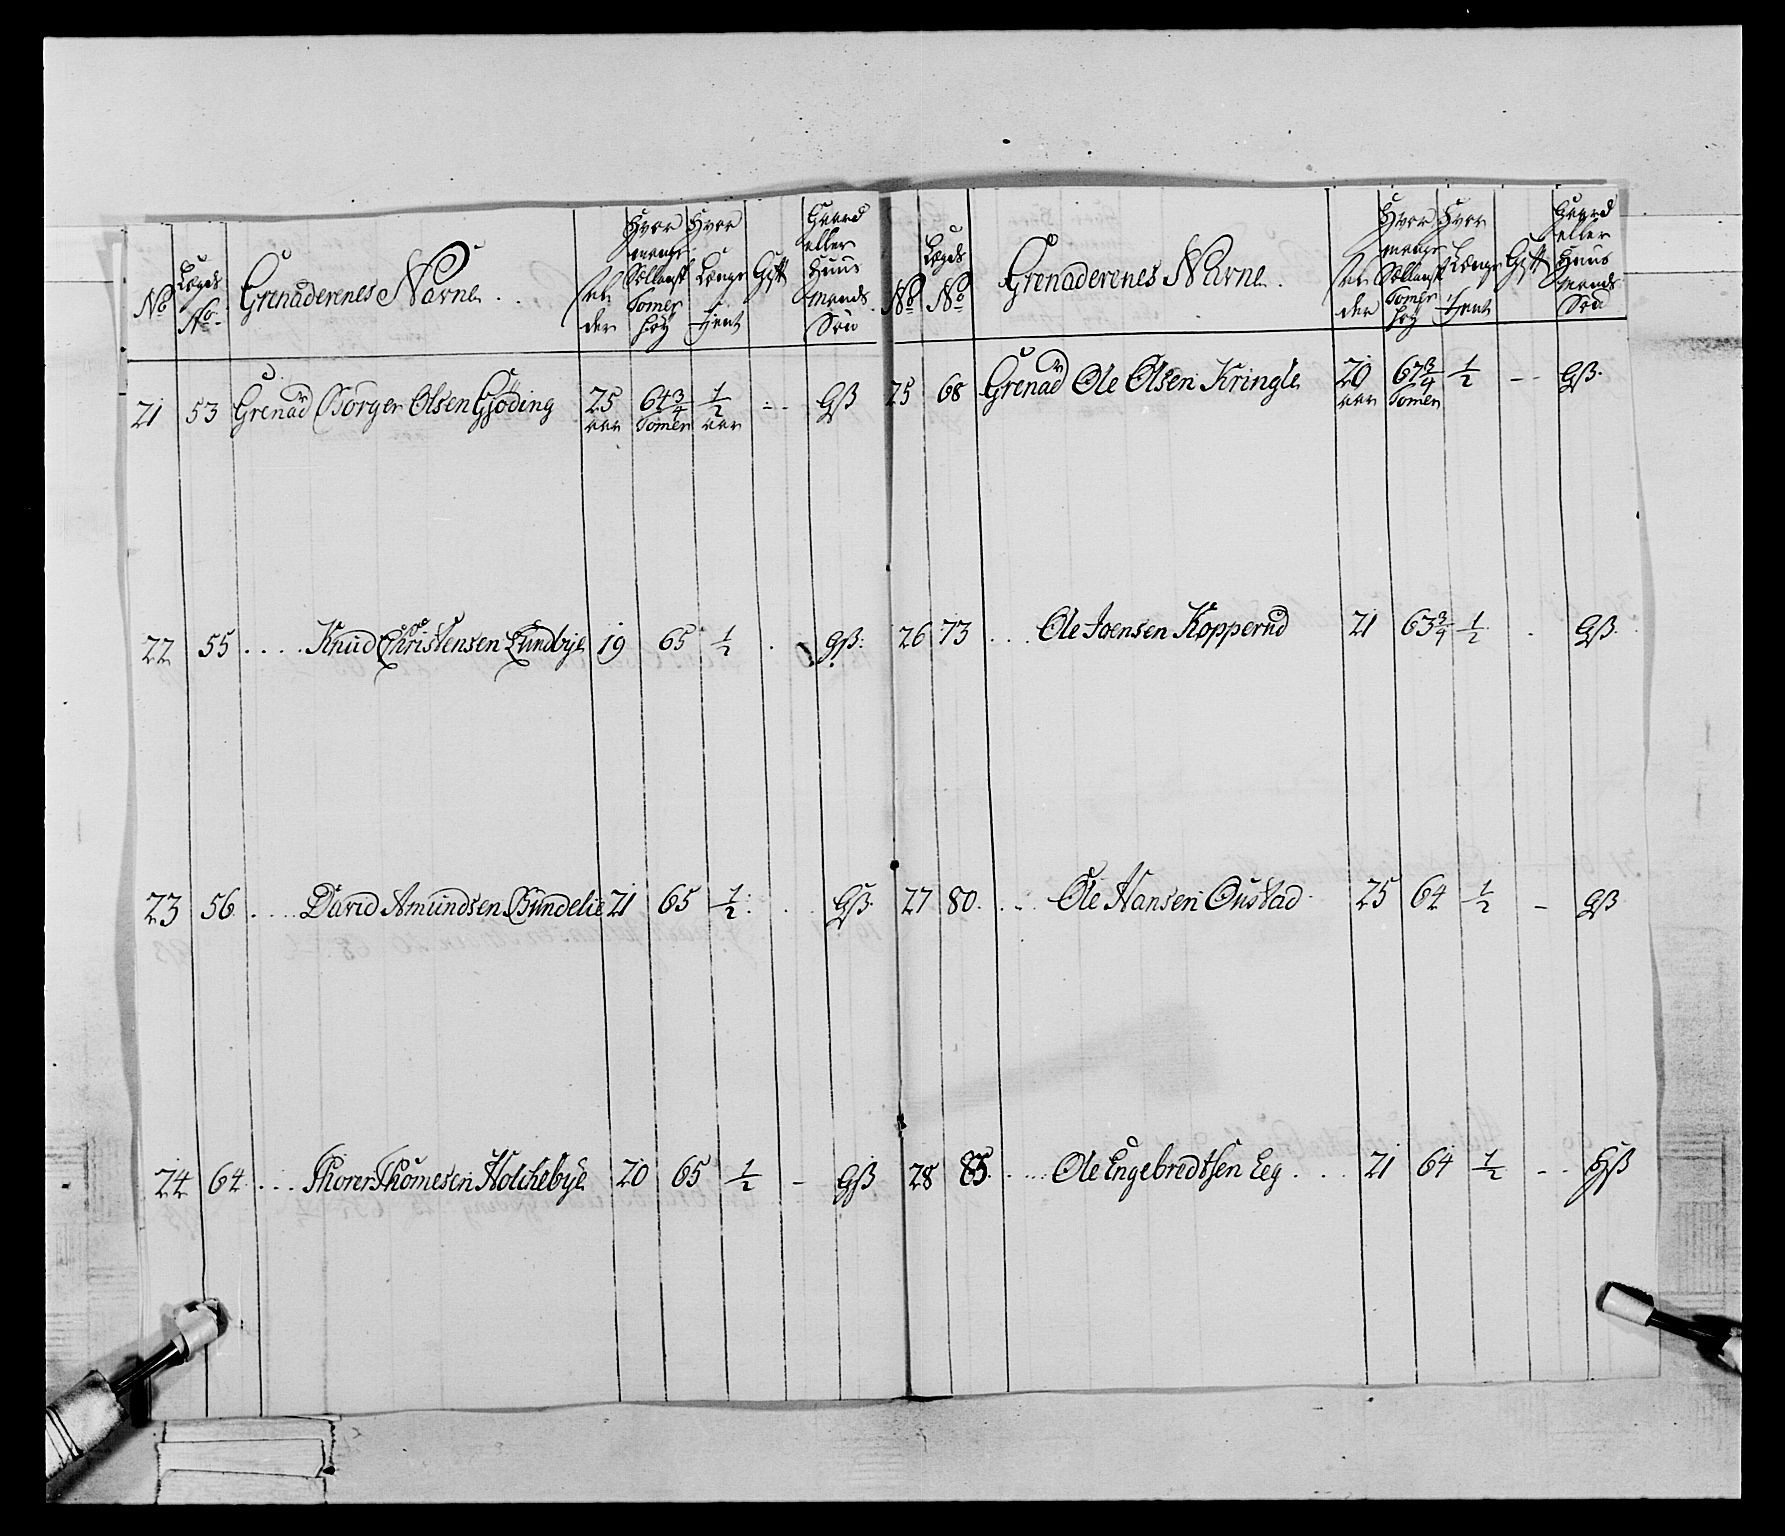 No
Lægds No
Grenaderenes Navne
Al der
Hvor mange Sollandsk Tomer høy
Hvor Længe tjent
Gift
Gaard eller Huus Mands Søn
21 53 Grenad Børger Olsen Gjøding 25 aar 64 3/4 Tomer 1/2 aar - GS
22 55 . . . . Knud Christensen Lundbye 19 65 1/2 . GS
23 56 . . . . David Amundsen Bundelie 21 65 1/2 . GS
24 64 . . . Thorer Thomesen Holchebye 20 65 1/2 - GS
No
Lægds No
Grenaderenes Navne
Al der
Hvor mange Sollandsk Tomer høy
Hvor Længe tjent
Gift
Gaard eller Huus Mands Søn
25 68 Grenad Ole Olsen Kringle 20 aar 67 3/4 Tomer 1/2 -- GS
26 73 . . . Ole Joensen Kopperud 21 63 3/4 1/2 . GS
27 80 . . . Ole Hansen Oustad 25 64 1/2 - GS
28 85 . . . . Ole Engebredtsen Eeg . . . 21 64 1/2 -- HS